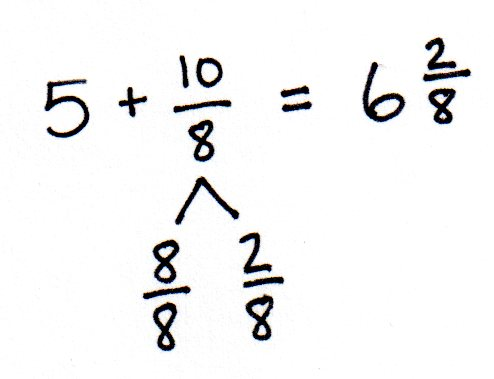 5 + 10/8 = 6 2/8
8/8 2/8